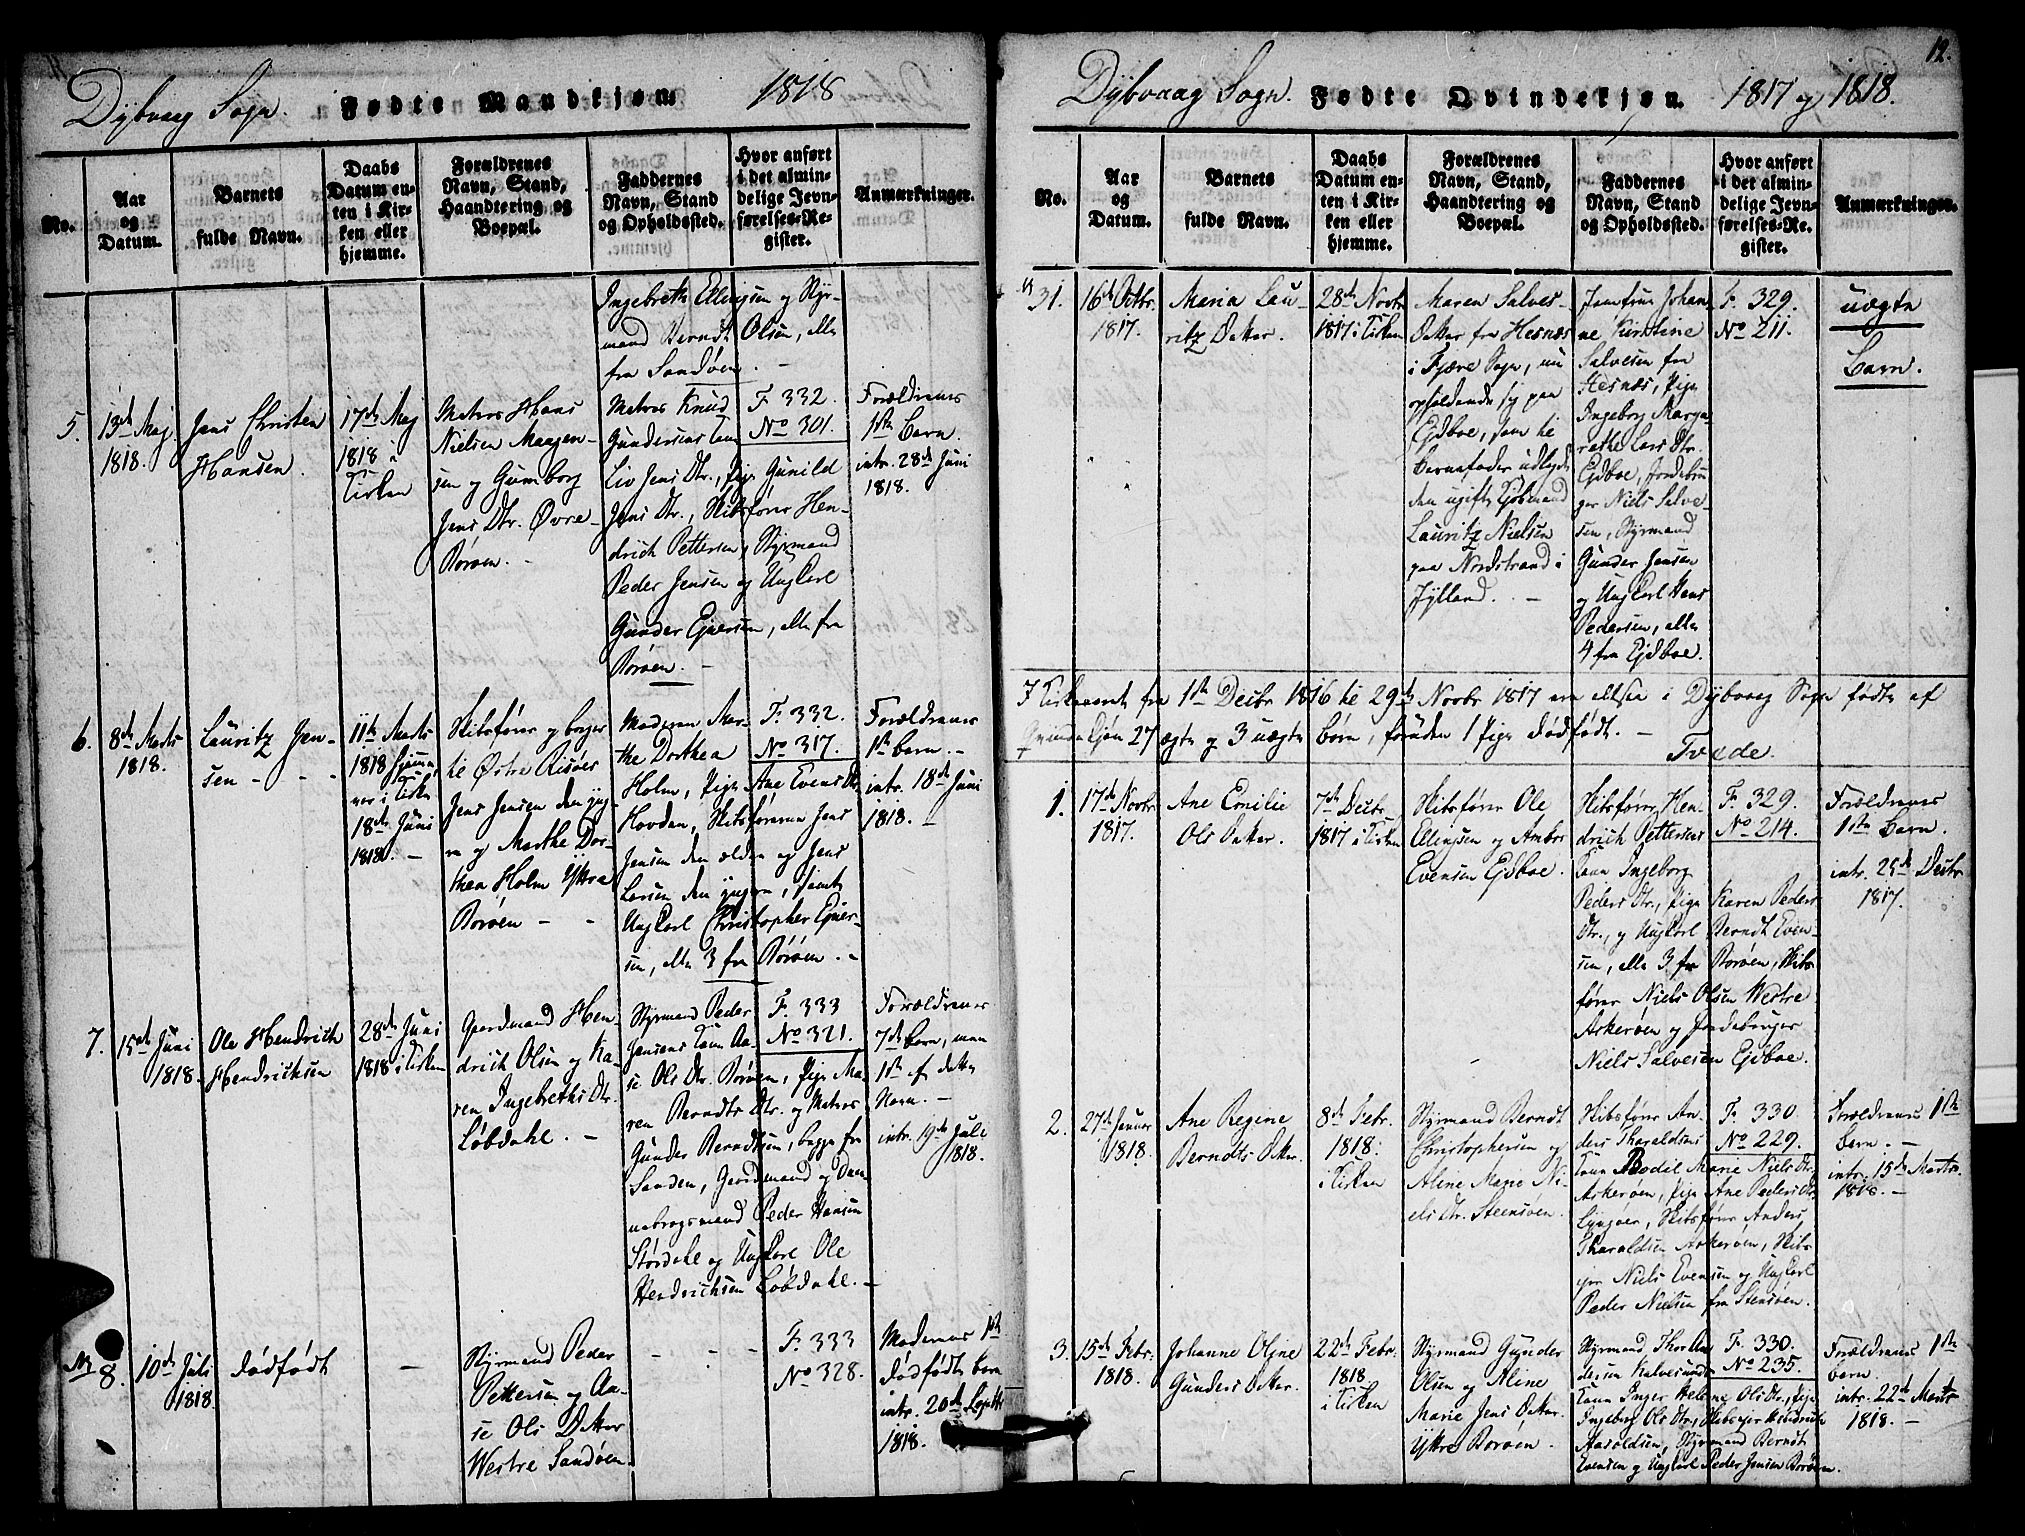 Dybvaag Sogn. Fødte Mandkjøn 1818
No.
Aar
og
Datum.
Barnets
fulde Navn.
Daabs
Datum en-
ten i Kir-
ken eller
hjemme.
Forældrenes
Navn, Stand,
Haandtering og
Boepæl.
Faddernes
Navn, Stand
og Opholdssted.
Hvor anført
i det almin-
delige Jevn-
førelses-Re-
gister.
Anmærkninger.
Ingebreth Ellingsen og Styr-
mand Berndt Olsen, alle
fra Sandøen.
5.
13de Maj
1818.
Jens Christen
Hansen.
17de Maj
1818 i
Kirken
Matros Hans
Nielsen Maagen-
sen og Gunborg
Jens Dtr. Øvre
Borøen.
Matros Knud
Gundersens Kone
Liv Jens Dtr., Pige Gunild
Jens Dtr., Skibsfører Hen-
drich Pettersen, Styrmand
Peder Jensen og Ungkarl
Gunder Ejversen, alle fra
Borøen.
F. 332.
No 301.
Forældrenes
1ste Barn.
intr. 28de Juni
1818.
6.
8de Marts
1818.
Lauritz Jen-
sen
11te Marts
1818 hjemme,
var i Kirken
18de Juni
1818.
Skibsfører og borger
til Østre Risøer
Jens Jensen den yng-
re og Marthe Dor-
thea Holm Yttre
Borøen
Moderen Mar-
the Dorthea
Holm, Pige Ane Evens Dtr.
Hovden, Skibsførerne Jens
Jensen den ældre og Jens
Larsen den yngre, samt
Ungkarl Christopher Ejver-
sen, alle 3 fra Borøen.
F. 332.
No 317.
Forældrenes
1ste barn.
intr. 18de Juni
1818.
7.
15de Juni
1818.
Ole Hendrich
Hendrichsen
28de Juni
1818 i Kirken
Gaardmand Hen-
drich Olsen og Ka-
ren Ingebreths Dtr.
Løbdahl.
Styrmand Peder
Jensens Kone Aa-
se Ols Dtr. Borøen, Pige Ma-
ren Berndts Dtr. og Matros
Gunder Berndtsen, begge fra
Sanden, Gaardmand og Dan-
nebrogsmand Peder Hansen
Størdahl og Ungkarl Ole
Hendrichsen Løbdahl.
F. 333
No 321.
Forældrenes
7de barn, men
1ste af dette
Navn.
intr. 19de Juli
1818.
8.
10de Juli
1818.
dødfødt
Styrmand Peder
Pettersen og Aa-
se Ols Datter
Westre Sandøen.
F. 333
No 328.
Moderens 1ste
dødfødte barn
intr. 20de
1818.
12.
Dybvaag Sogn. Fødte Qvindekjøn. 1817 og 1818.
No.
Aar
og
Datum.
Barnets
fulde Navn.
Daabs
Datum en-
ten i Kir-
ken eller
hjemme.
Forældrenes
Navn, Stand,
Haandtering og
Boepæl.
Faddernes
Navn, Stand
og Opholdssted.
Hvor anført
i det almin-
delige Jevn-
førelses-Re-
gister.
Anmærkninger.
31.
16de Octbr.
1817.
Maria Lau-
ritz Datter.
28de Novbr
1817 i Kirken
Maren Salves-
Datter fra Hesnæs
i Fjære Sogn, nu
opholdende sig paa
Ejdboe, som til
Barnefader udlagde
den ugifte Kjøbmand
Lauritz Nielsen
paa Nordstrand i
Jylland.
Jomfrue Johan-
ne Kirstine
Salvesen fra
Hesnæs, Pige
Ingeborg Marga-
rethe Lars Dtr.
Ejdboe, Jordebru-
ger Niels Salve-
sen, Styrmand
Gunder Jensen
og Ungkarl Hans
Pedersen, alle
4 fra Ejdboe.
F. 329.
No 211.
uægte
Barn.
I Kirkeaaret fra 1ste Decbr 1816 til 29de Novbr 1817 ere altsaa i Dybvaag Sogn fødte af
Qvindekjøn 27 ægte og 3 uægte børn, foruden 1 Pige dødfødt.
Tvede.
1.
17de Novbr
1817.
Ane Emilie
Ols Datter.
7de Decbr
1817 i Kirken
Skibsfører Ole
Ellingsen og Ambor
Evensen Ejdboe.
Skibsfører Hen-
drich Pettersens
Kone Ingeborg
Peders Dtr., Pige Karen Peders
Dtr., og Ungkarl Berndt Even-
sen, alle 3 fra Borøen, Skibs-
fører Niels Olsen Westre
Askerøen og Jordebruger
Niels Salvesen Ejdboe.
F. 329.
No 214.
Forældrenes
1ste Barn.
intr. 25de Decbr
1817.
2.
27de Januar
1818.
Ane Regine
Berndts Datter.
8de Febr.
1818.
i Kirken
Styrmand Berndt
Christophersen og
Aline Marie Ni-
els Dtr. Steensøen.
Skibsfører An-
ders Tharaldsens
Kone Bodil Marie Niels Dtr.
Askerøen, Pige Ane Peders Dtr.
Lyngøer, Skibsfører Anders
Tharaldsen Askerøen, Skibs-
ejer Niels Evensen og Ungkarl
Peder Nielsen fra Stensøen.
F. 330.
No 229.
Forældrenes 1ste
barn.
intr. 15de Marts
1818.
3.
15de Febr.
1818.
Johanne Oline
Gunders Datter.
22de Febr.
1818.
i Kirken
Styrmand Gunder
Olsen og Aline
Marie Jens Datter
Yttre Borøen.
Styrmand Thor An-
dersen Kalvesunds
Kone Inger Helene Ols Dtr., Pige
Ingeborg Ols Dtr., Skibsejer Hendrich
Haroldsen, Styrmand Berndt
Evensen og Ungkarl Peder Jensen Borøen.
F. 330.
No 235.
Forældrenes 1ste
barn.
intr. 22de Marts
1818.